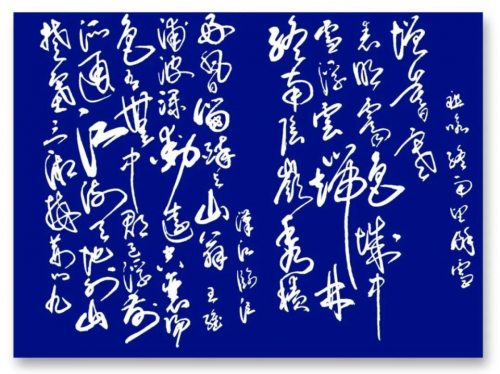 楚塞三湘接荊門九
派通江流天地外山
色有無中郡邑浮前
浦波瀾動遠空襄陽
好風日留醉與山翁
王維
漢江臨泛
終南陰嶺秀積
雪浮雲端林
表明霽色城中
增暮寒
祖咏終南望餘雪